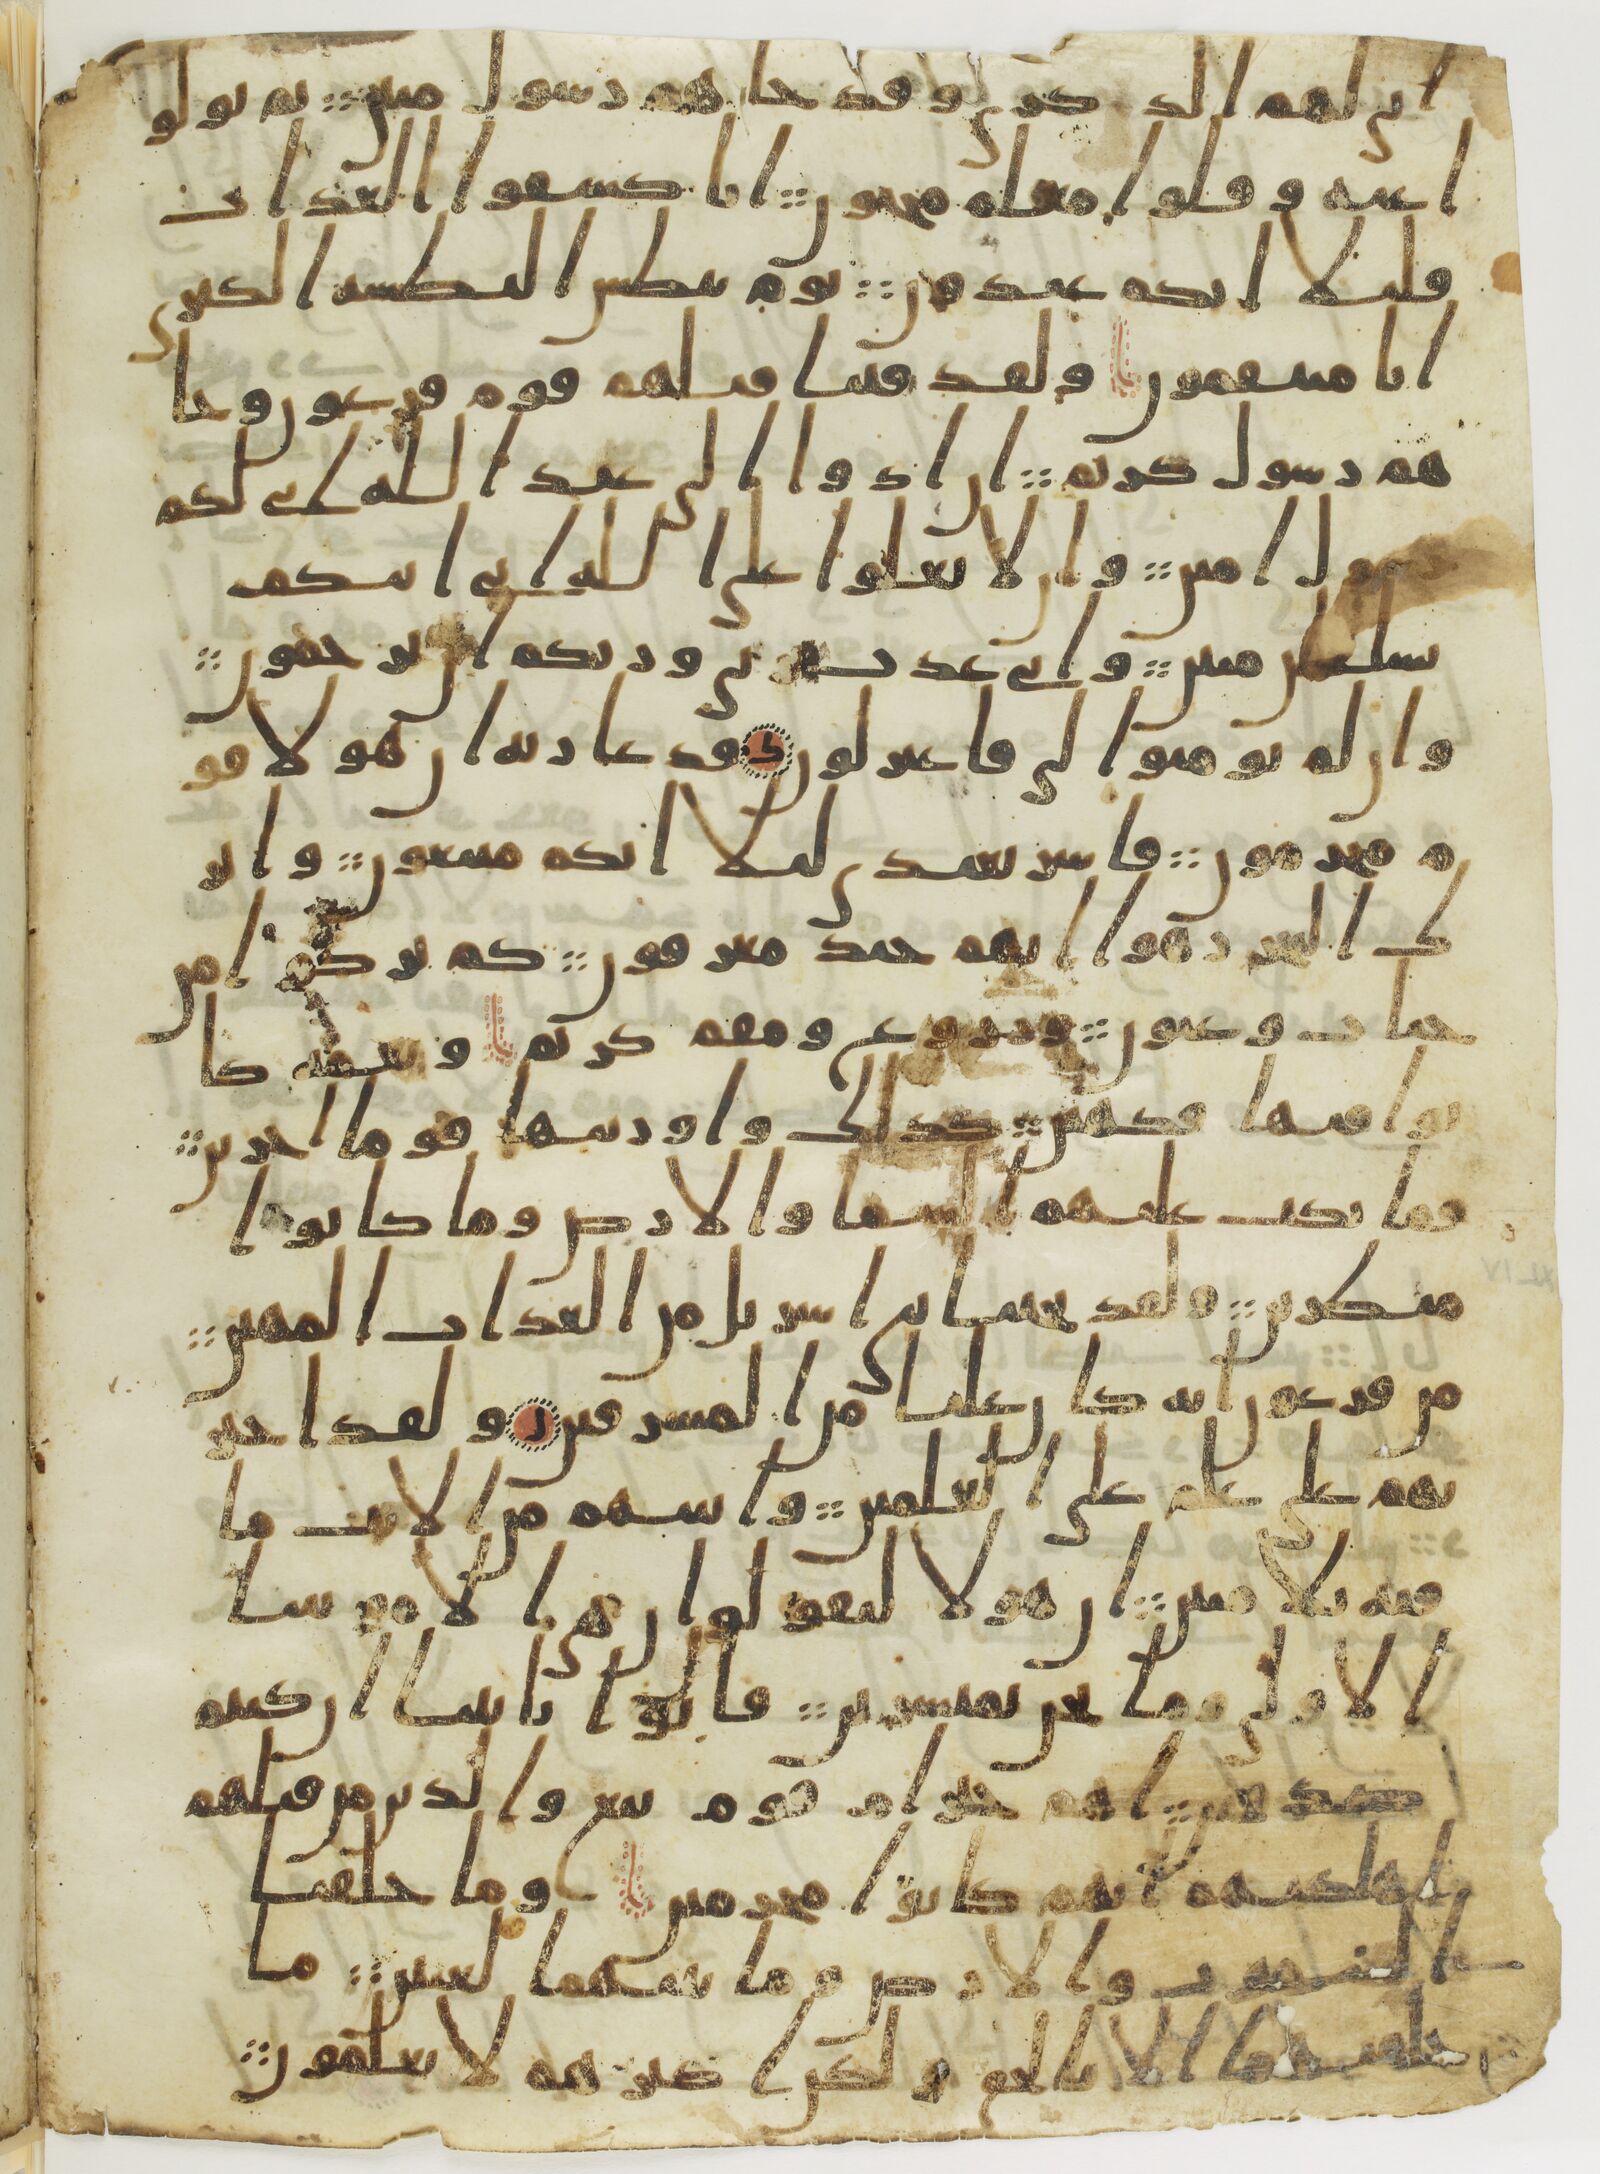 انى لهم الذكرى وقد جاهم رسول مبين ثم تولو
ا عنه وقلوا معلم مجنون انا كشفوا العذاب
قليلا انكم عيدون يوم نبطش البطشه الكبرى
انا منتقمون ولقد فتنا قبلهم قوم فرعون وجا
هم رسول كريم ان ادوا الى عبد الله انى لكم
رسول امين وان لا تعلوا على الله انى اتيكم
بسلطن مبين وانى عذت بربى وربكم ان ترجمون
وان لم تومنوا لى فاعتزلون فدعا ربه ان هولا قو
م مجرمون فاسر بعبدى ليلا انكم متبعون واتر
ك البحر رهوا انهم جند مغرقون كم تركوا من
جنات وعيون وزروع ومقم كريم ونعمه كا
نوا فيها فكهين كذلك واورثنها قوما اخرين
فما بكت عليهم السما والارض وما كانوا
منظرين ولقد نجينا بنى اسريل من العذاب المهين
من فرعون انه كان عليا من المسرفين ولقد اختر
نهم على علم على العلمين واتينهم من الايت ما
فيه بلا مبين ان هولا ليقولون ان هى الا موتتنا
الاولى وما نحن بمنشرين فاتوا بابينا ان كنتم
صدقين اهم خير ام قوم تبع والذين من قبلهم
اهلكنهم انهم كانوا مجرمين وما خلقنا
السموت والارض وما بينهما لعبين ما
خلقنهما الا بالحق ولكن اكثرهم لا يعلمون